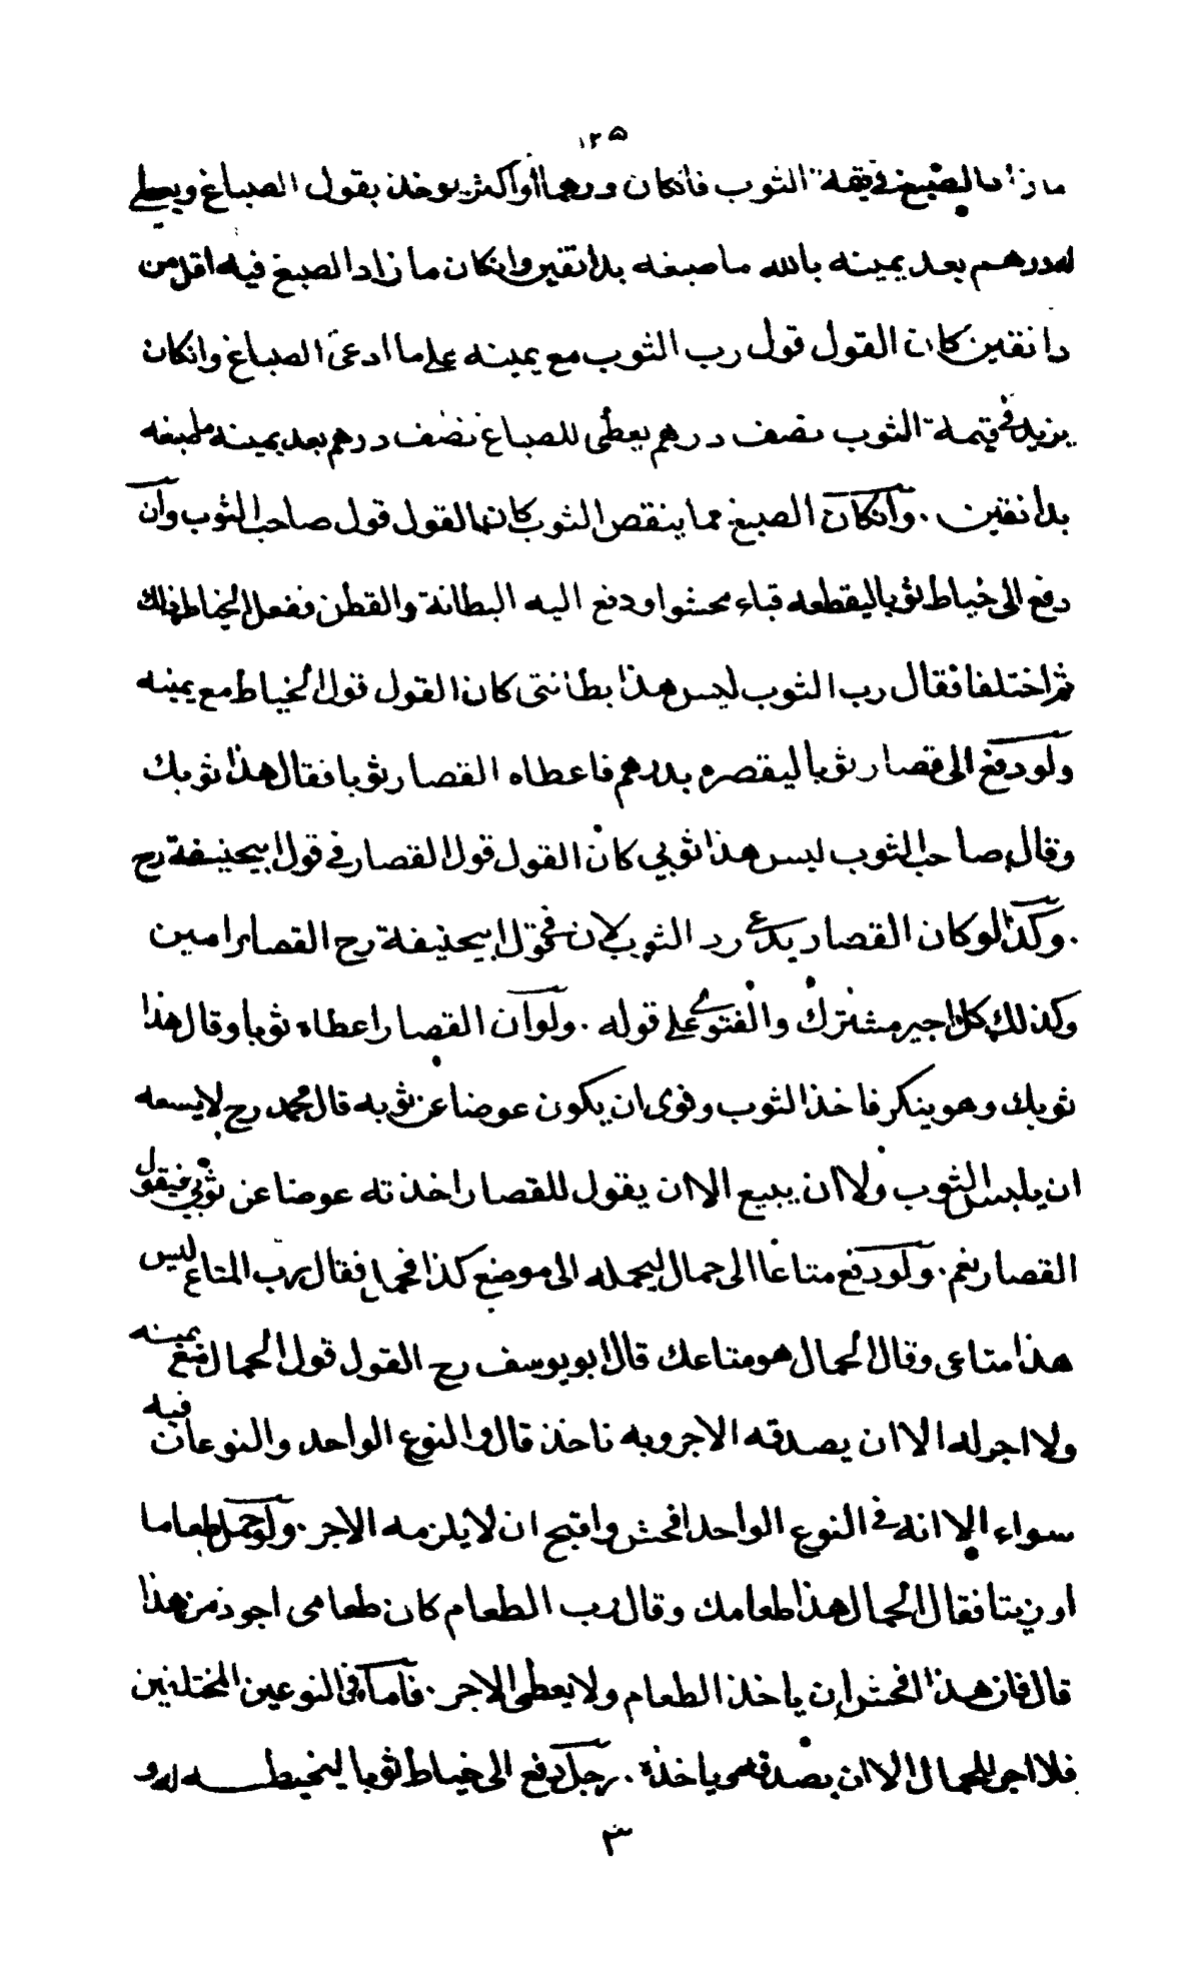 ١٢٥
ما زاد الصبغ في قيمة الثوب فانكان درهما أو أكثر يوخذ بقول الصباغ ويعطى
له درهم بعد يمينه بالله ما صبغه بدانقين وانكان ما زاد الصبغ فيه اقل من
دانقين كان القول قول رب الثوب مع يمينه على ما ادعى الصباغ وانكان
يزيد في قيمة الثوب نصف درهم يعطى للصباغ نصف درهم بعد يمينه ما صبغه
بدانقين . وانكان الصبغ مما ينقص الثوب كان القول قول صاحب الثوب وان
دفع الى خياط ثوبا ليقطعه قباء محشوا ودفع اليه البطانة والقطن ففعل الخياط ذلك
ثم اختلفا فقال رب الثوب ليس هذا بطانتى كان القول قول الخياط مع يمينه
ولو دفع الى قصار ثوبا ليقصره بدرهم فاعطاه القصار ثوبا فقال هذا ثوبك
وقال صاحب الثوب ليس هذا ثوبي كان القول قول القصار في قول ابيحنيفة رح
. وكذا لو كان القصار يدعى رد الثوب لان في قول ابيحنيفة رح القصار امين
وكذلك كل اجير مشترك والفتوى على قوله . ولو ان القصار اعطاه ثوبا وقال هذا
ثوبك وهو ينكر فاخذ الثوب ونوى ان يكون عوضا عن ثوبه قال محمد رح لا يسعه
ان يلبس الثوب ولا ان يبيع الا ان يقول للقصار اخذته عوضا عن ثوبي فيقول
القصار نعم . ولو دفع متاعا الى حمال ليحمله الى موضع كذا فحمل فقال رب المتاع ليس
هذا متاعى وقال الحمال هو متاعك قال ابو يوسف رح القول قول الحمال مع يمينه
ولا اجر له الا ان يصدقه الاجر وبه ناخذ قال والنوع الواحد والنوعان فيه
سواء الا انه في النوع الواحد افحش واقبح ان لا يلزمه الاجر . ولو حمل طعاما
او زيتا فقال الحمال هذا طعامك وقال رب الطعام كان طعامى اجود من هذا
قال فان هذا افحش ان ياخذ الطعام ولا يعطى الاجر . فاما في النوعين المختلفين
فلا اجر للحمال الا ان يصدقه وياخذه . رجل دفع الى خياط ثوبا ليخيطه له و